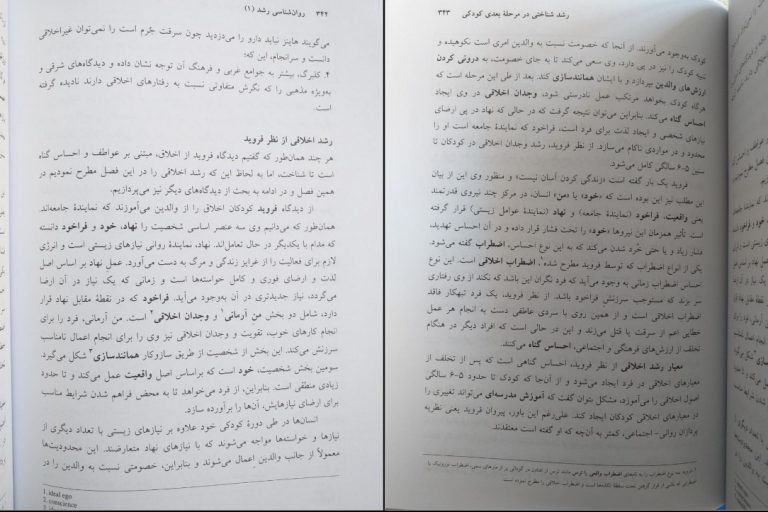 ۳۴۲ روان‌شناسی رشد (۱)
می‌گویند هاینز نباید دارو را می‌دزدید چون سرقت جُرم است را نمی‌توان غیراخلاقی
دانست و سرانجام، این که؛
۴. کلبرگ، بیشتر به جوامع غربی و فرهنگ آن توجه نشان داده و دیدگاه‌های شرقی و
به‌ویژه مذهبی را که نگرش متفاوتی نسبت به رفتارهای اخلاقی دارند نادیده گرفته
است.
رشد اخلاقی از نظر فروید
هر چند همان‌طور که گفتیم دیدگاه فروید از اخلاق، مبتنی بر عواطف و احساس گناه
است تا شناخت، اما به لحاظ این که رشد اخلاقی را در این فصل مطرح نمودیم در
همین فصل و در ادامه به بحث از دیدگاه‌های دیگر نیز می‌پردازیم.
از دیدگاه فروید کودکان اخلاق را از والدین می‌آموزند که نماینده جامعه‌اند.
همان‌طور که می‌دانیم وی سه عنصر اساسی شخصیت را نهاد، خود و فراخود دانسته
که مدام با یکدیگر در حال تعامل‌اند. نهاد، نمایندهٔ روانی نیازهای زیستی است و انرژی
لازم برای فعالیت را از غرایز زندگی و مرگ به دست می‌آورد. عمل نهاد بر اساس اصل
لذت و ارضای فوری و کامل خواسته‌ها است و زمانی که یک نیاز در آن ارضا
می‌گردد، نیاز جدیدتری در آن به‌وجود می‌آید. فراخود که در نقطهٔ مقابل نهاد قرار
دارد، شامل دو بخش من آرمانی۱ و وجدان اخلاقی۲ است. من آرمانی، فرد را برای
انجام کارهای خوب، تقویت و وجدان اخلاقی نیز وی را برای انجام اعمال نامناسب
سرزنش می‌کند. این بخش از شخصیت از طریق سازوکار همانندسازی۳ شکل می‌گیرد.
سومین بخش شخصیت، خود است که براساس اصل واقعیت عمل می‌کند و تا حدود
زیادی منطقی است. بنابراین، از فرد می‌خواهد تا به محض فراهم شدن شرایط مناسب
برای ارضای نیازهایش، آن‌ها را برآورده سازد.
انسان‌ها در طی دورهٔ کودکی خود علاوه بر نیازهای زیستی با تعداد دیگری از
نیازها و خواسته‌ها مواجه می‌شوند که با نیازهای نهاد متعارضند. این محدودیت‌ها
معمولاً از جانب والدین اعمال می‌شوند و بنابراین، خصومتی نسبت به والدین را در
1. ideal ego
2. conscience
رشد شناختی در مرحلهٔ بعدی کودکی ۳۴۳
کودک به‌وجود می‌آورند. از آنجا که خصومت نسبت به والدین امری است نکوهیده و
تنبیه کودک را نیز در پی دارد، وی سعی می‌کند تا به جای خصومت، به درونی کردن
ارزش‌های والدین بپردازد و با ایشان همانندسازی کند. بعد از طی این مرحله است که
هرگاه کودک بخواهد مرتکب عمل نادرستی شود، وجدان اخلاقی در وی ایجاد
احساس گناه می‌کند. بنابراین می‌توان نتیجه گرفت که در حالی که نهاد در پی ارضای
نیازهای شخصی و ایجاد لذت برای فرد است، فراخود که نمایندهٔ جامعه است او را
محدود و در مواردی ناکام می‌سازد. از نظر فروید، رشد وجدان اخلاقی در کودکان تا
سنین ۵-۶ سالگی کامل می‌شود.
فروید یک بار گفته است «زندگی کردن آسان نیست» و منظور وی از این بیان
این مطلب نیز این بوده است که «خود» یا «من» انسان، در مرکز چند نیروی قدرتمند
یعنی واقعیت، فراخود (نمایندهٔ جامعه) و نهاد (نمایندهٔ عوامل زیستی) قرار گرفته
است. تأثیر همزمان این نیروها «خود» را تحت فشار قرار داده و در آن احساس تهدید،
فشار زیاد و یا حتی خُرد شدن می‌کند که به این نوع احساس، اضطراب گفته می‌شود.
یکی از انواع اضطراب که توسط فروید مطرح شده۱، اضطراب اخلاقی است. این نوع
احساس اضطراب زمانی به وجود می‌آید که فرد نگران این باشد که نکند از وی رفتاری
سر بزند که مستوجب سرزنش فراخود باشد. از نظر فروید، یک فرد تبهکار فاقد
اضطراب اخلاقی است و از همین روی با سردی عاطفی دست به انجام هر عمل
خطایی اعم از سرقت یا قتل می‌زند و این در حالی است که افراد دیگر در هنگام
تخلف از ارزش‌های فرهنگی و اجتماعی، احساس گناه می‌کنند.
معیار رشد اخلاقی از نظر فروید، احساس گناهی است که پس از تخلف از
معیارهای اخلاقی در فرد ایجاد می‌شود و از آن‌جا که کودک تا حدود ۵-۶ سالگی
اصول اخلاقی را می‌آموزد، مشکل بتوان گفت که آموزش مدرسه‌ای می‌تواند تغییری را
در معیارهای اخلاقی کودکان ایجاد کند. علی‌رغم این باور، پیروان فروید یعنی نظریه
پردازان روانی-اجتماعی، کمتر به آن‌چه که او گفته است معتقدند.